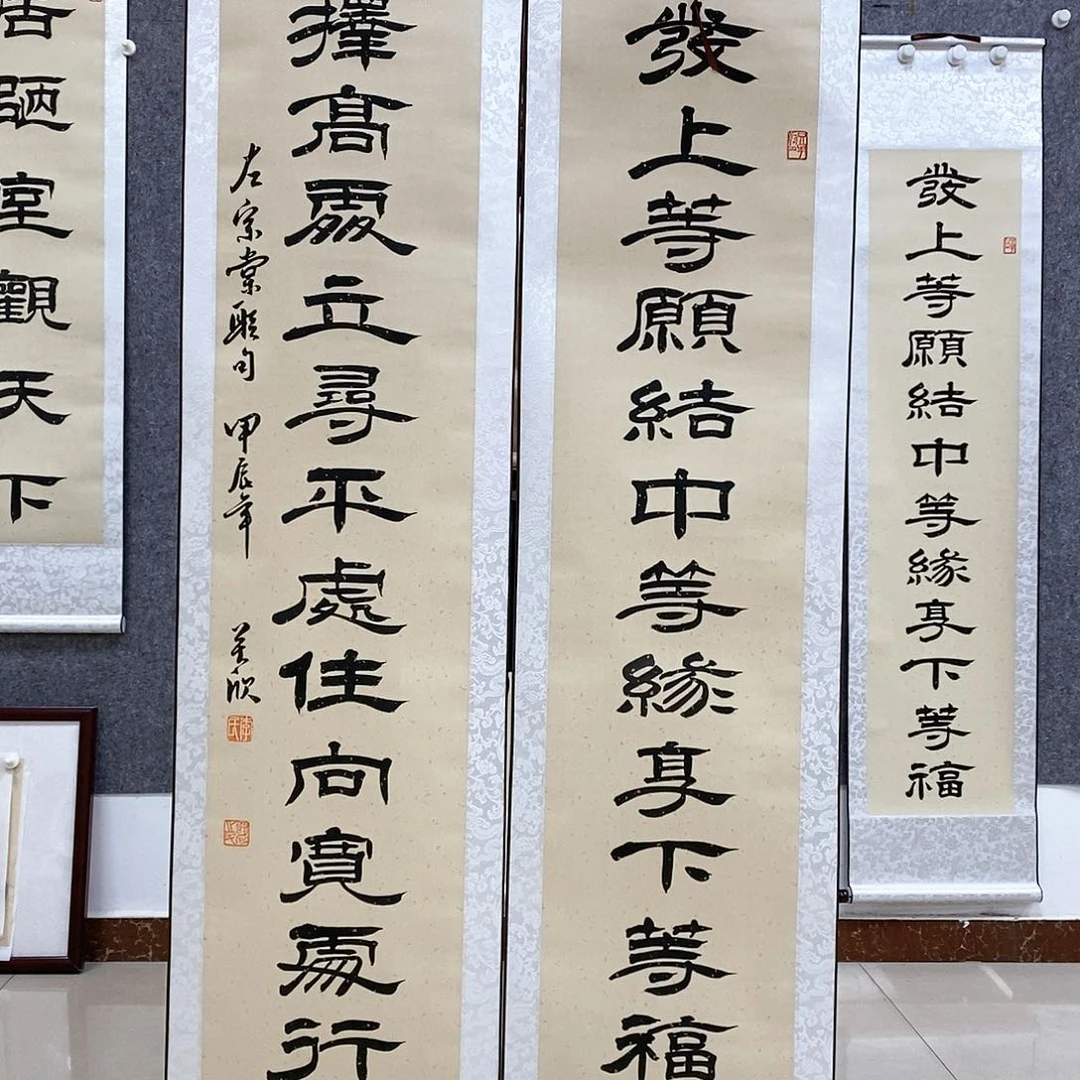 發上等願結中等緣享下等福
發上等願結中等緣享下等福
擇高處立尋平處住向寬處行
左宗棠聯句 甲辰年
居陋室觀天下